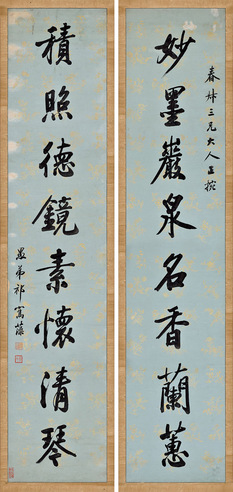 春圃三兄大人正腕
妙墨巖泉名香蘭蕙
積照德鏡素懷清琴
愚弟祁寯藻